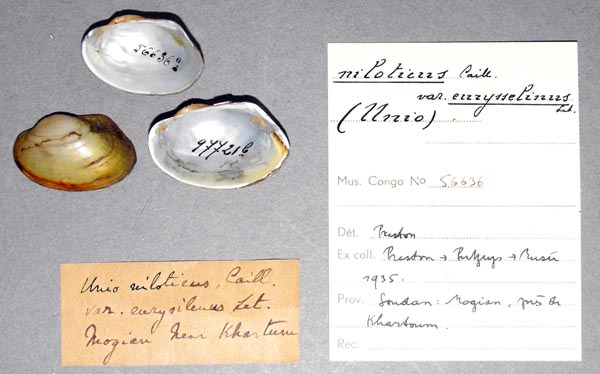 56636a
97721b
Unio niloticus, Caill.
var. eurysilenus Let.
Mogian Near Khartum
niloticus Caill.
var. eurysselinus Let.
(Unio)
Mus. Congo No 56636
Dét. Preston
Ex coll. Preston → → Musée
1935.
Prov. Soudan: Mogian, près de
Khartoum.
Rec.